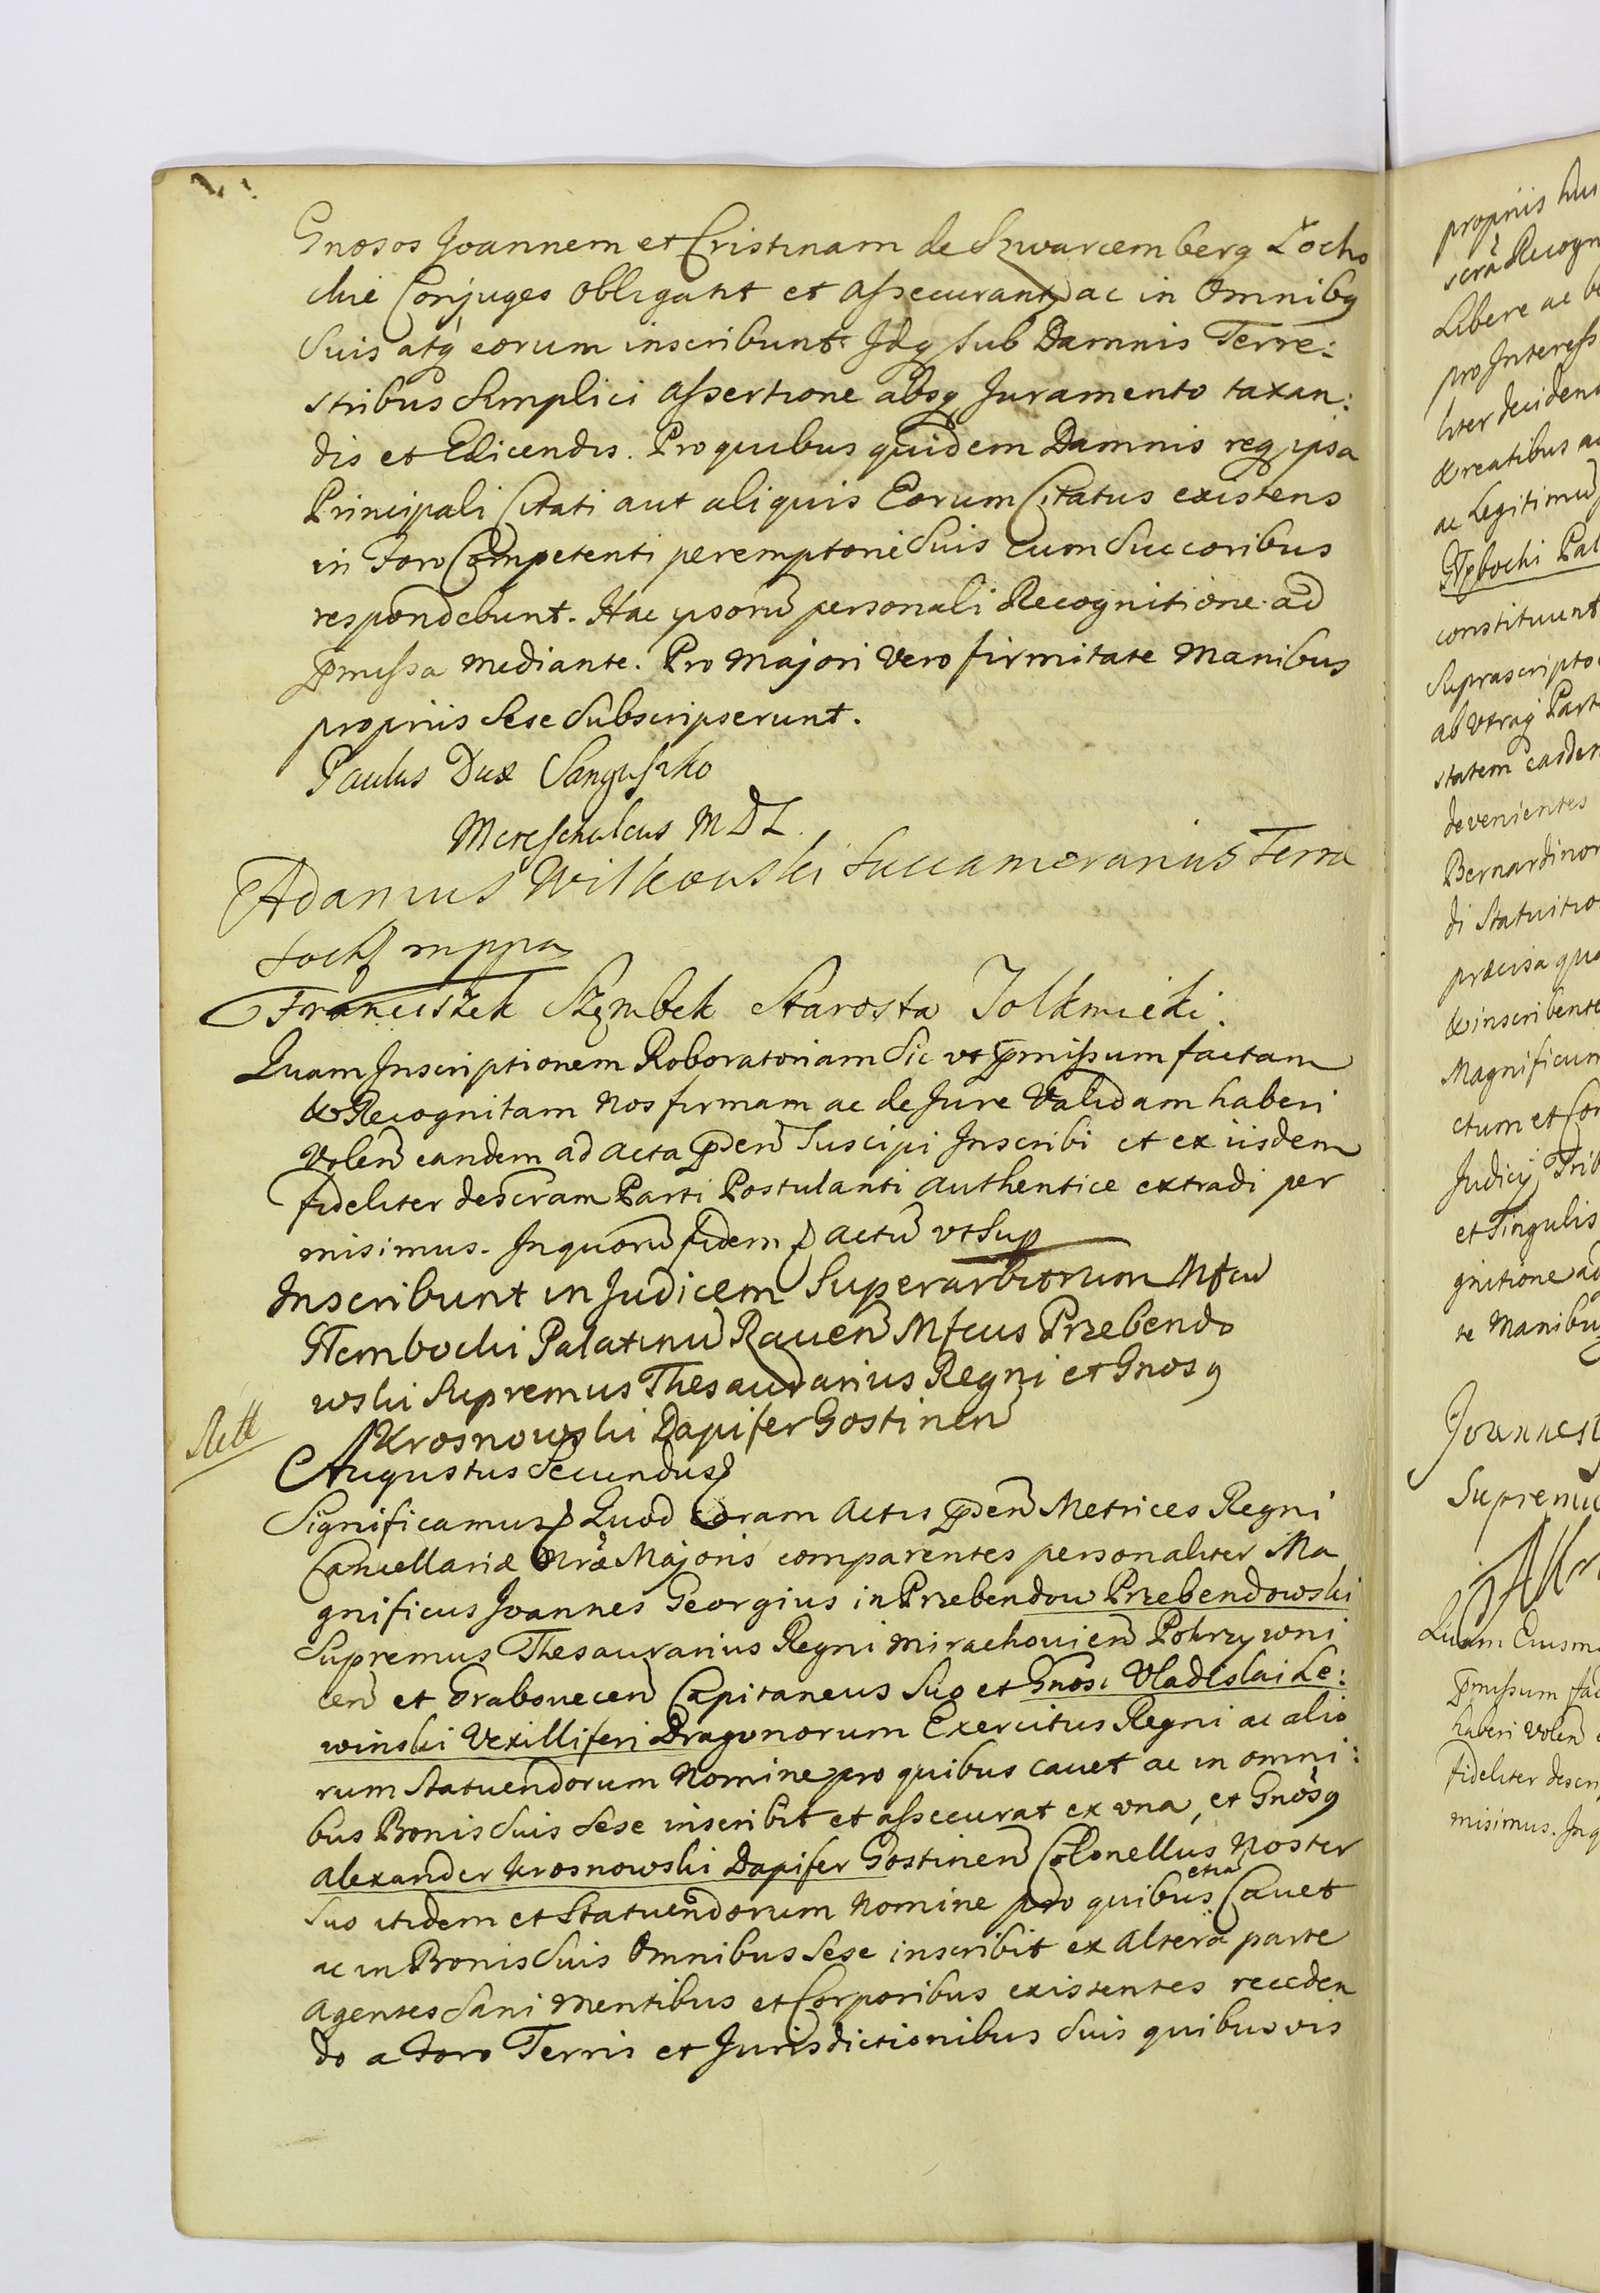 Gnosos Joannem et Cristinam de Szwarcemberg Łocho
ckie Conjuges obligant et assecurant, ac in Omnibq
Suis atq eorum inscribunt Idq sub Damnis Terre:
stribus Simplici assertione absq Juramento taxan:
dis et Elicendis. Pro quibus quidem Damnis req ipsa
Principali Citati aut aliquis Eorum Citatus existens
in Foro Competenti peremptorie Suis cum Succoribus
respondebunt. Hac ipsorũ personali Recognitione ad
Pmissa mediante. Pro Majori Vero firmitate Manibus
propriis Sese Subscripserunt.
Paulus Dux Sanguszko
Mareschalcus M D L.
Adamus Witkowski Succamerarius Terræ
Soch mppa
Franciszek Szembek Starosta Tolkmicki.
Quam Inscriptionem Roboratoriam Sic vt pmissum factam
& Recognitam Nos firmam ac de Jure Validam haberi
Volen eandem ad acta pden Suscipi Inscribi et ex iisdem
fideliter descram Parti Postulanti authentice extradi per
misimus. In quorũ fidem actũ vt Sup
Inscribunt in Judicem Superarbitorum Mfcu
Stembocki Palatinũ Raven Mfcus Przebendo
wski Supremus Thesaurarius Regni et Gnosq
Krosnowski Dapifer Gostinen
Augustus Secundus
Significamus Quod coram Actis pden Metrices Regni
Cancellariæ Nræ Majoris comparentes personaliter Ma
gnificus Joannes Georgius in Przebendow Przebendowski
Supremus Thesaurarius Regni Mirachovien Pokrzywni
cen et Grabovecen Capitaneus Suo et Gnosi Vladislai Le:
winski Vexilliferi Dragonorum Exercitus Regni ac alio
rum Statuendorum Nomine pro quibus cavet ac in omni:
bus Bonis Suis Sese inscribit et assecurat ex una, et Gnosq
Alexander Krosnowski Dapifer Gostinen Colonellus Noster
Suo itidem et Statuendorum Nomine pro quibus etiã Cavet
ac in Bonis Suis Omnibus Sese inscribit ex altera parte
Agentes Sani Mentibus et Corporibus existentes receden
do a Foro Terris et Jurisdictionibus Suis quibusvis
propriis
scrã Recogn
Libere ac be
pro Interess
liter deciden
& reatibus
ac Legitimũ
constituunt
Suprascripto
ab Utraq Part
statem easdem
devenientes
Bernardinor
di Statuitio
præcisa quo
& inscribente
Magnificum
ctum et Con
Judicij Trib
et Singulis
gnitione ad
te Manibus
Joannes
Supremus
Quam Eiusmo
pmissum fac
haberi Volen
fideliter descr
misimus. In q